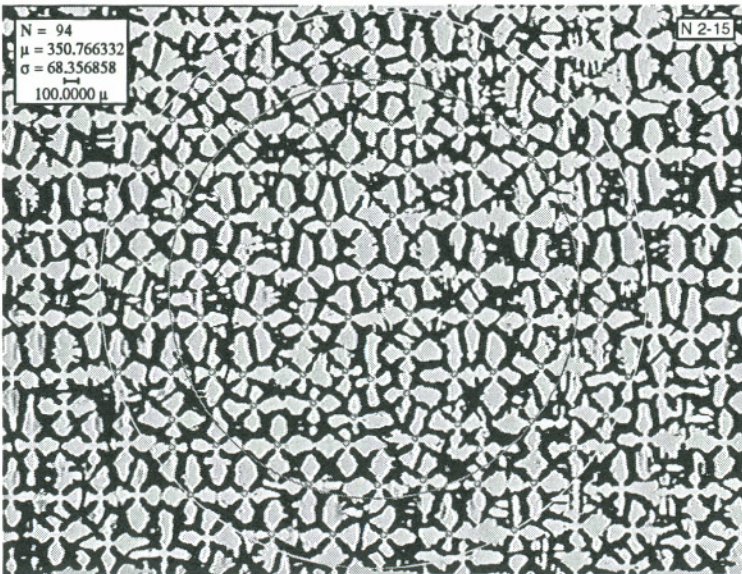 N = 94
μ = 350.766332
σ = 68.356858
100.0000 μ
N 2-15